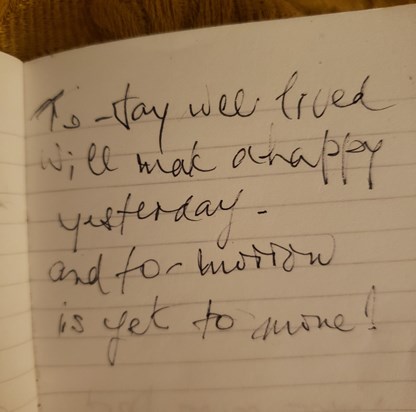 To-day well lived
will mak a happy
yesterday.
and to-morrow
is yet to